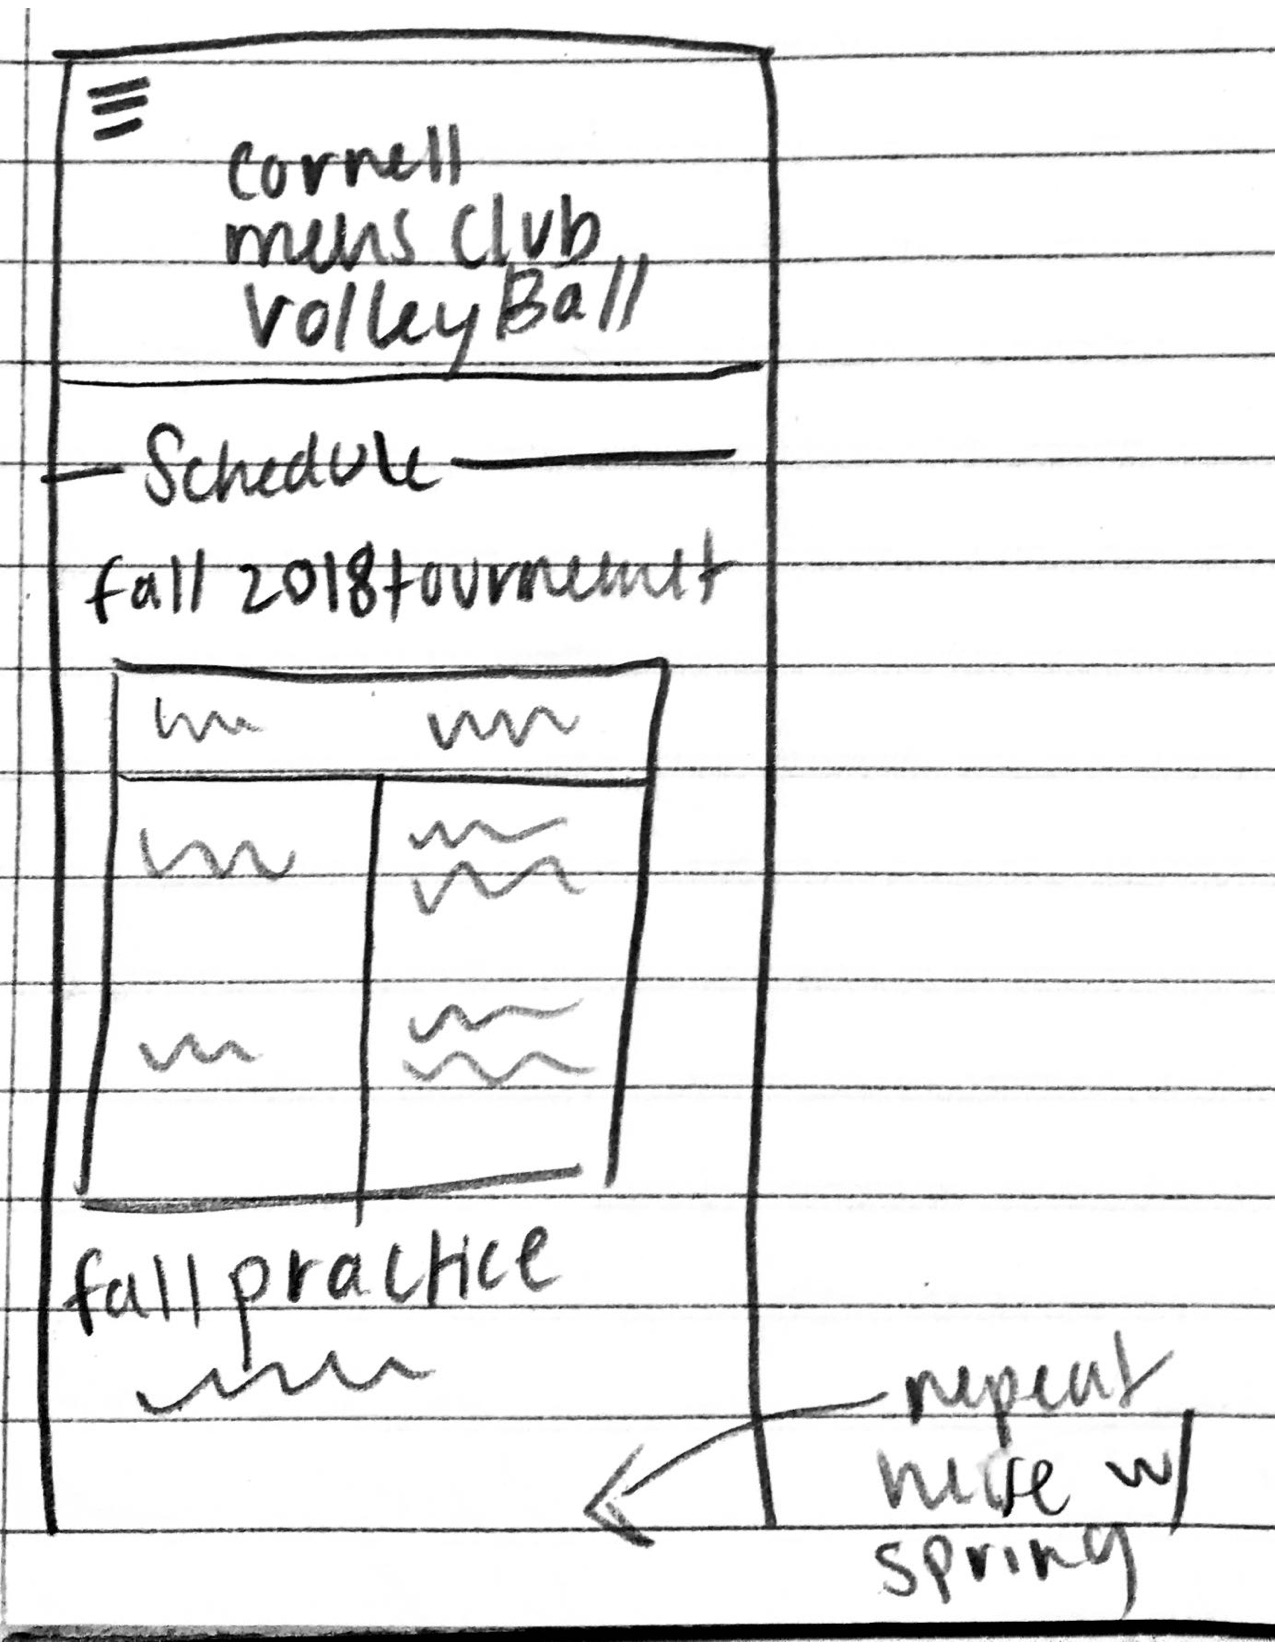 cornell
mens club
volleyBall
Schedule
fall 2018 tournemet
fall practice
repeat
here w/
spring